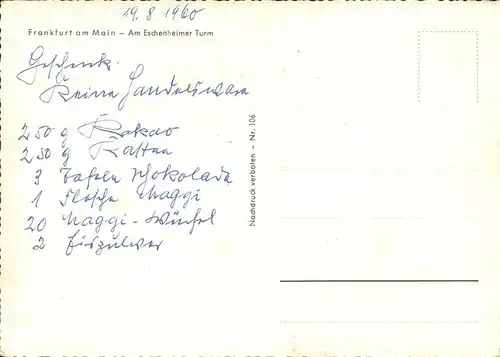 19.8.1960
Frankfurt am Main – Am Eschenheimer Turm
Geschenk.
Keine Handelsware
250 g Kakao
250 g Kaffee
3 Tafeln Schokolade
1 Flasche Maggi
20 Maggi-Würfel
2 Eispulver
Nachdruck verboten – Nr. 106